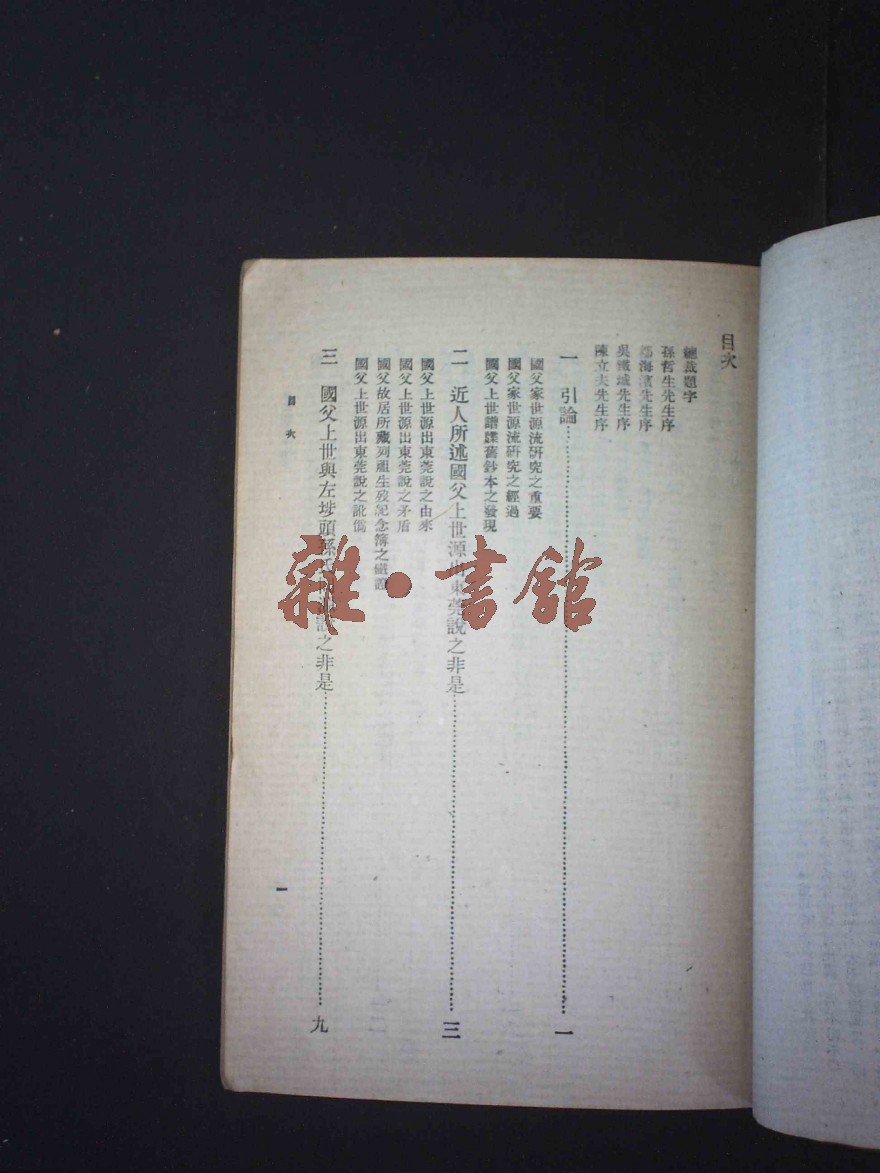 目次
總裁題字
孫哲生先生序
鄒海濱先生序
吳鐵城先生序
陳立夫先生序
一 引論……一
國父家世源流研究之重要
國父家世源流研究之經過
國父上世譜牒舊鈔本之發現
二 近人所述國父上世源出東莞說之非是……三
國父上世源出東莞說之由來
國父上世源出東莞說之矛盾
國父故居所藏列祖生歿紀念簿之鐵證
國父上世源出東莞說之訛僞
三 國父上世與左埗頭孫氏 之非是……九
目次
一
雜·書館